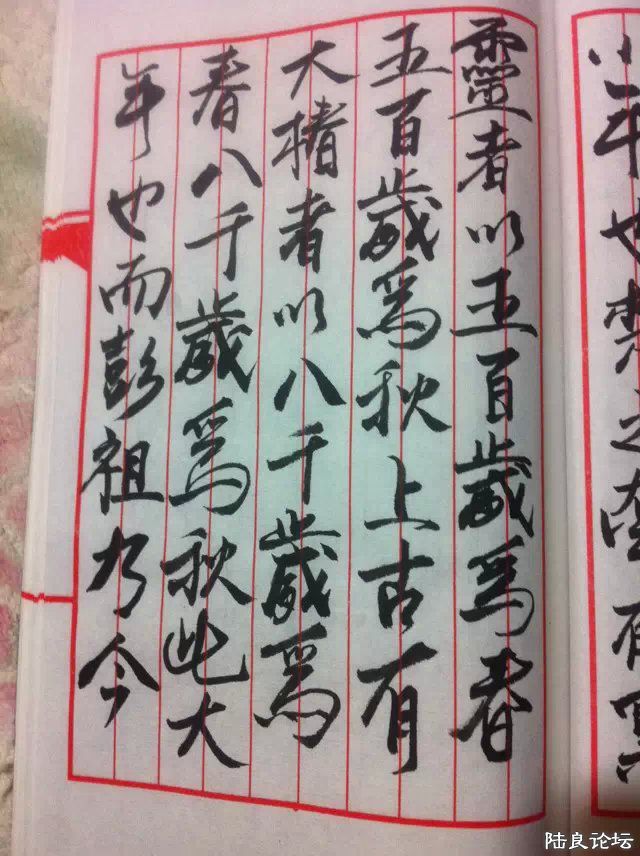 小年也楚之南有冥
靈者以五百歲爲春
五百歲爲秋上古有
大椿者以八千歲爲
春八千歲爲秋此大
年也而彭祖乃今
陆良论坛